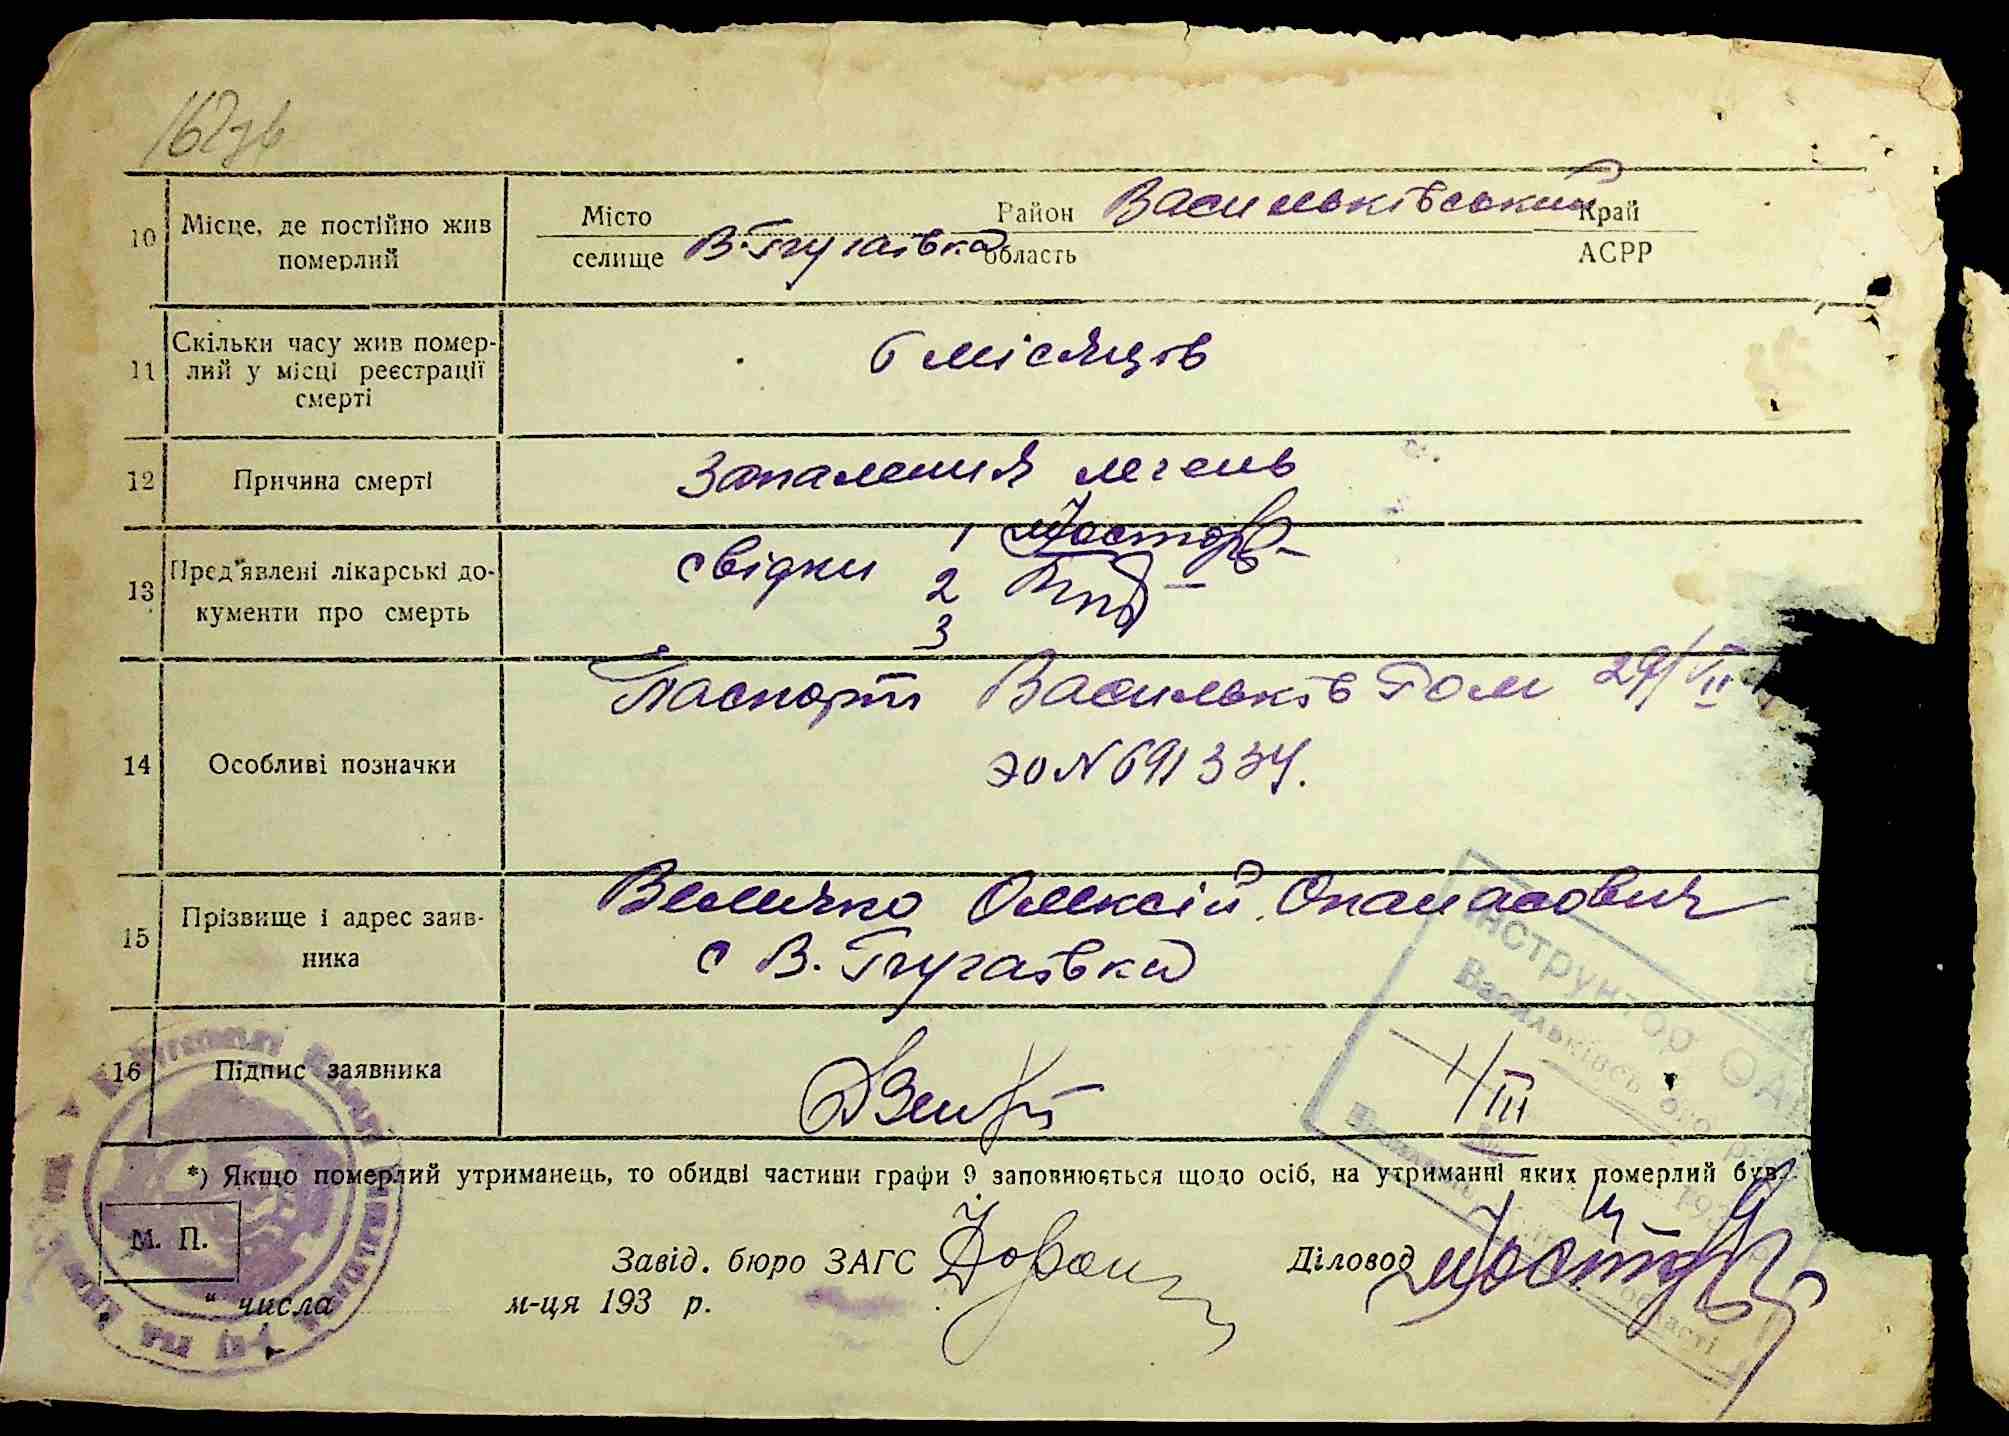 10 Місце, де постійно жив померлий
Місто
селище В. Бугаївка
Район Васильківський Край
область АСРР
11 Скільки часу жив помер-
лий у місці реєстрації
смерті
6 місяців
12 Причина смерті
Запалення легень
13 Пред'явлені лікарські до-
кументи про смерть
свідки 1
2
3
14 Особливі позначки
Паспорт Васильків
№ 691334.
15 Прізвище і адрес заяв-
ника
Величко Олексій Опанасович
с В. Бугаївка
16 Підпис заявника
1/III
*) Якщо померлий утриманець, то обидві частини графи 9 заповнюється щодо осіб, на утриманні яких померлий був.
М. П.
Завід. бюро ЗАГС
Діловод
" числа м-ця 193 р.
Інструктор